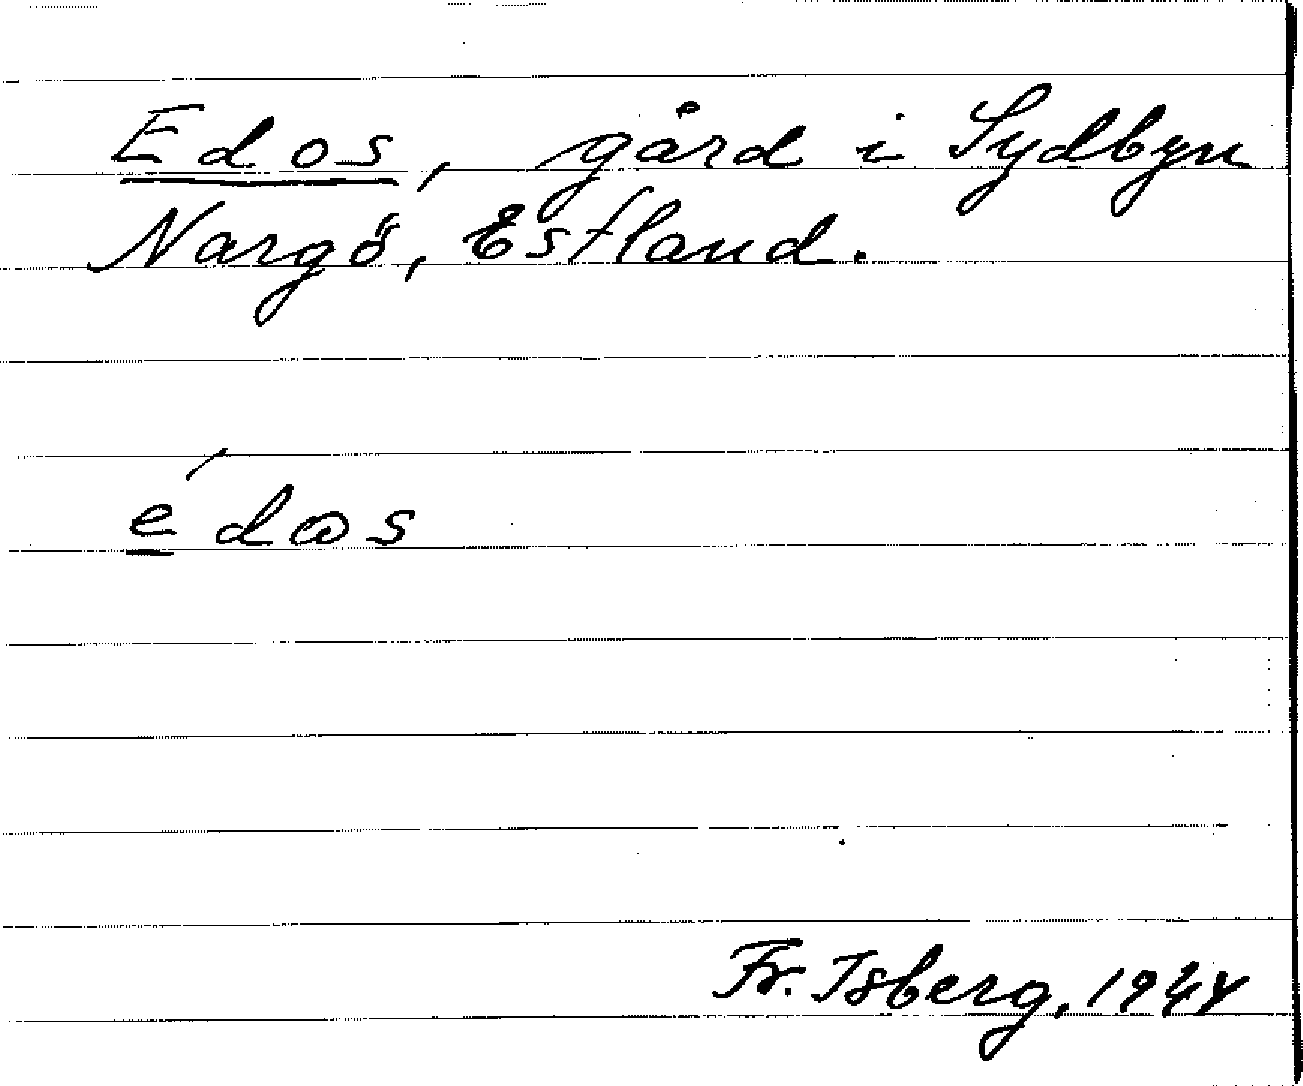 Edos, gård i Sydbyn
Nargö, Estland.
édos
Fr. Isberg, 1944